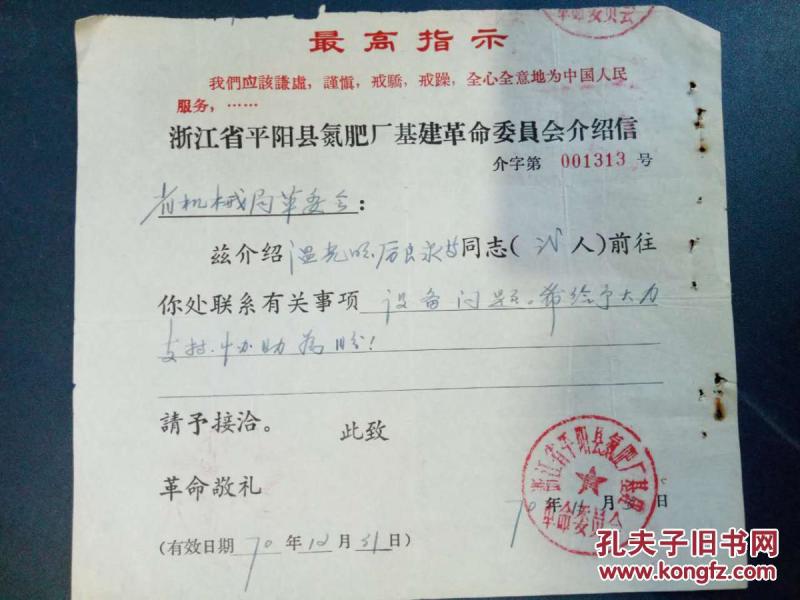 革命委员会
最高指示
我們应該謙虛，謹慎，戒驕，戒躁，全心全意地为中国人民
服务，……
浙江省平阳县氮肥厂基建革命委員会介绍信
介字第 001313 号
省机械局革委会：
兹介绍 同志（ 人）前往
你处联系有关事项 设备问题。希给予大力
支持.协助为盼！
請予接洽。 此致
革命敬礼
浙江省平阳县氮肥厂基建
革命委员会
70年 月 日
（有效日期70年12月31日）
孔夫子旧书网
www.kongfz.com